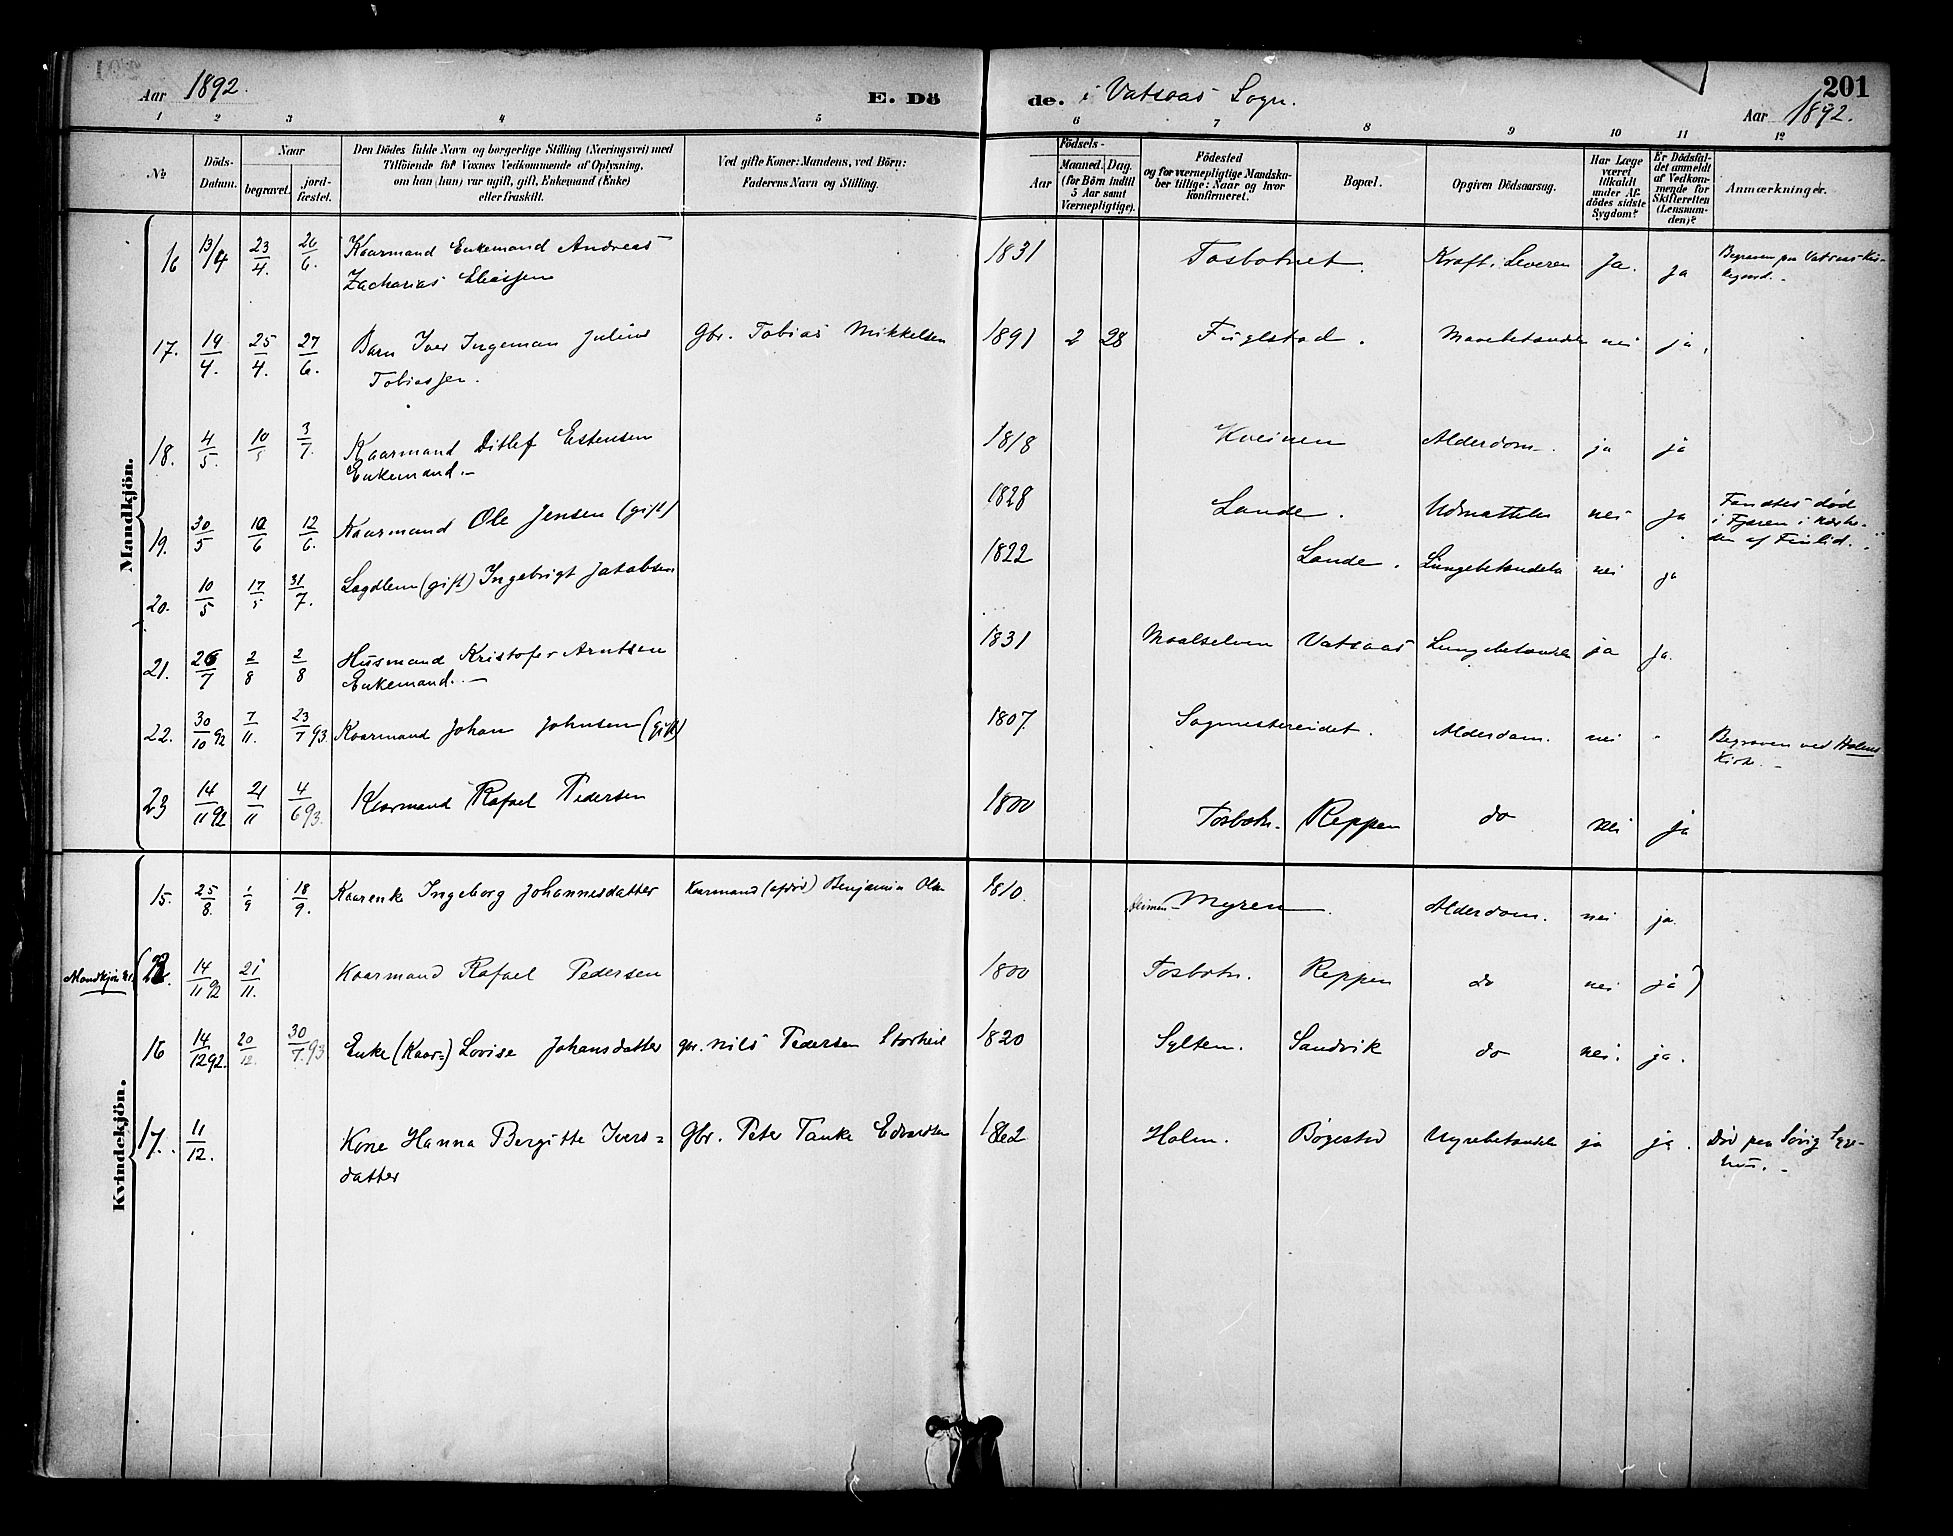 Aar 1892. E. Dö de. i Vatsaas Sogn. Aar 1892. 201
1 2 3 4 5 6 7 8 9 10 11 12
No
Döds-Datum.
Naar
begravet.
jord-fæstet.
Den Dödes fulde Navn og borgerlige Stilling (Næringsvei) med
Tilföiende for Voxnes Vedkommende af Oplysning,
om han (hun) var ugift, gift, Enkemand (Enke)
eller fraskilt.
Ved gifte Koner: Mandens, ved Börn:
Faderens Navn og Stilling.
Födsels-
Aar
Maaned. Dag.
(for Börn indtil
5 Aar samt
Værnepligtige).
Födested
og for værnepligtige Mandska-
ber tillige: Naar og hvor
konfirmeret.
Bopæl.
Opgiven Dödsaarsag.
Har Læge
været
tilkaldt
under Af-
dödes sidste
Sygdom?
Er Dödsfal-
det anmeldt
af Vedkom-
mende for
Skifteretten
(Lensman-
den)?
Anmærkninger.
Mandkjön.
16 13/4 23/4. 26/6. Kaarmand Enkemand Andreas 1831 Tosbotnet. Kræft i Leveren Ja. ja Begraven paa Vatsaas Kir-
Zacharias Eliassen kegaard.
17. 19/4. 25/4. 27/6. Barn Iver Ingeman Julius Gbr. Tobias Mikkelsen 1891 2 28 Fuglstad. Mavebetændelse nei ja.
Tobiassen.
18. 4/5. 10/5 3/7. Kaarmand Ditlef Estensen 1818 Kveinen Alderdom. ja ja
Enkemand.
19. 30/5 10/6 12/6. Kaarmand Ole Jensen (gift) 1828 Lande. Udmattelse nei ja Fandtes død
i Fjæren i Nærhe-
den af Finlid.
20. 10/5 17/5 31/7. Lægdlem (gift) Ingebrigt Jakobsen 1822 Lande. Lungebetændelse nei ja
21. 26/7 2/8 2/8 Husmand Kristofer Arntsen 1831 Maalselven Vatsaas Lungebetændelse ja ja.
Enkemand.
22. 30/10 92 7/11. 23/7 93 Kaarmand Johan Johnsen (gift) 1807. Sagmestereidet. Alderdom. nei - Begraven ved Holms
Kirke.
23 14/11 92 21/11 4/6 93. Kaarmand Rafael Pedersen 1800 Tosbotn. Reppen do nei ja
Kvindekjön.
15. 25/8. 1/9 18/9. Kaarenke Ingeborg Johannesdatter Kaarmand (afdød) Benjamin Olsen 1810. Myren. Alderdom. nei ja.
Mandkjön (14/11 92 21/11. Kaarmand Rafael Pedersen 1800 Tosbotn. Reppen do nei ja)
16 14/12 92. 20/12. 30/7. 93 Enke (Kaar=) Lovise Johansdatter gbr. Nils Pedersen Storheil 1820 Sylten. Sandvik do nei. ja.
17. 11/12. Kone Hanna Bergitte Ivers= Gbr. Peter Tanke Edvardsen 1862 Holm. Bøgestad Nyrebetændelse ja ja. Død paa Søvig Syge-
datter hus.